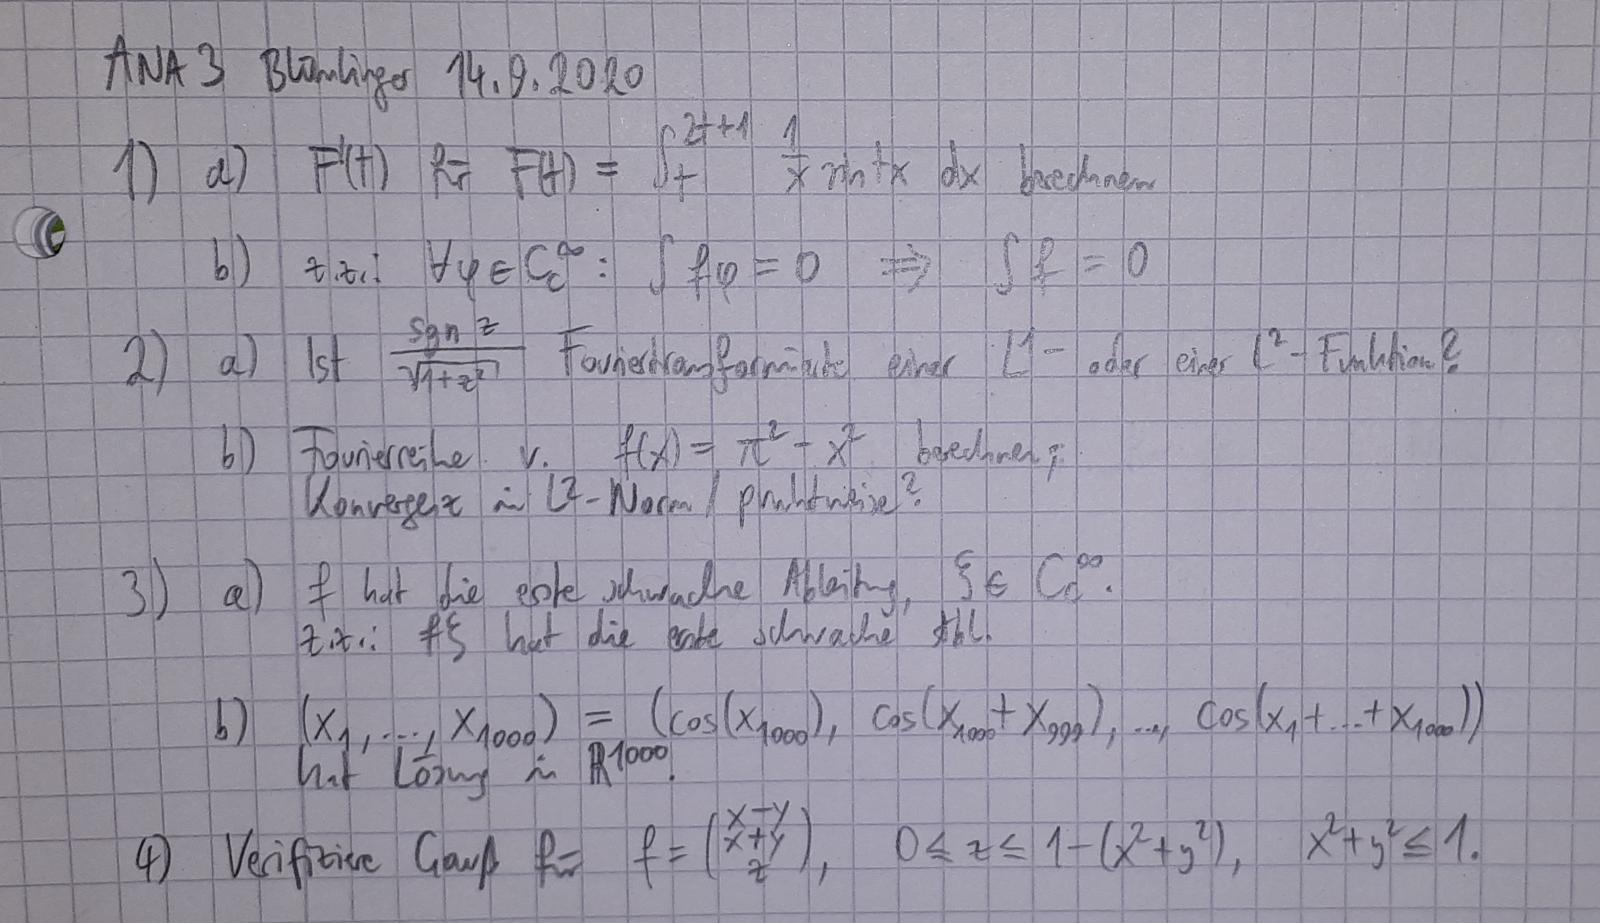 ANA 3 Blümlinger 14.9.2020
1) a) F'(t) für F(t) = ∫_t^{2t+1} 1/x sin tx dx berechnen
b) z.z.: ∀φ ∈ C_c^∞: ∫ fφ = 0 ⇒ ∫ f = 0
2) a) Ist sgn z / √(1+z²) Fouriertransformierte einer L¹- oder einer L²-Funktion?
b) Fourierreihe v. f(x) = π² - x² berechnen;
Konvergenz in L²-Norm / punktweise?
3) a) f hat die erste schwache Ableitung, ξ ∈ C_c^∞.
z.z.: fξ hat die erste schwache Abl.
b) (x₁, ..., x₁₀₀₀) = (cos(x₁₀₀₀), cos(x₁₀₀₀ + x₉₉₉), ..., cos(x₁+...+x₁₀₀₀))
hat Lösung in ℝ¹⁰⁰⁰.
4) Verifiziere Gauß für f = (x-y, x+y, z), 0 ≤ z ≤ 1-(x²+y²), x²+y² ≤ 1.